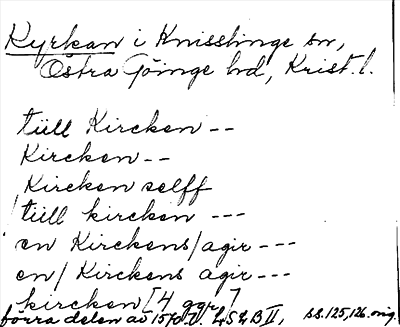 Kyrkan i Knisslinge sn,
Östra Göinge hd, Krist. l.
tüll Kircken --
Kircken --
Kircken selff
tüll kircken ---
en Kirckens/agir ---
en/ Kirckens agir ---
kircken [4 ggr]
förra delen av 15 LSEB II, ss. 125, 126. orig.